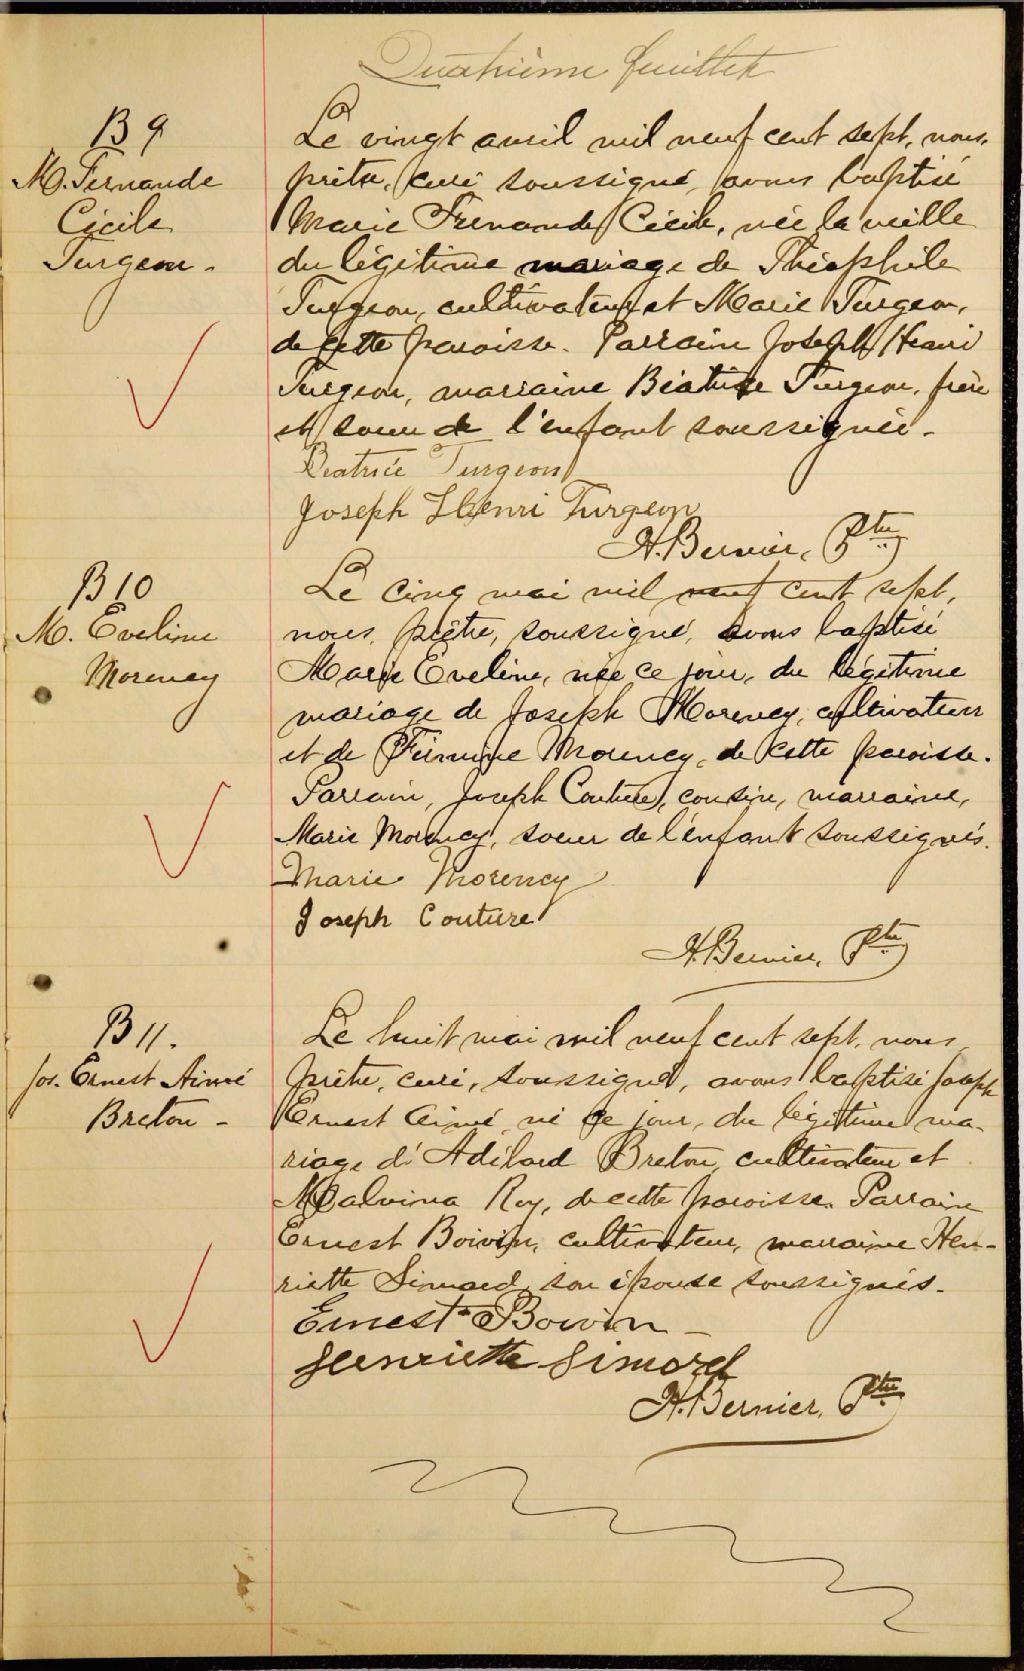 Quatrième feuillet
B 9
M. Fernande
Cécile
Turgeon.
Le vingt avril mil neuf cent sept, nous,
prêtre, curé soussigné, avons baptisé
Marie Fernande Cécile, née la veille
du légitime mariage de Théophile
Turgeon, cultivateur et Marie Turgeon,
de cette paroisse. Parrain Joseph Henri
Turgeon, marraine Béatrice Turgeon, frère
et soeur de l'enfant soussignés.
Beatrice Turgeon
Joseph Henri Turgeon
H. Bernier, Ptre
B 10
M. Eveline
Morency
Le cinq mai mil neuf cent sept,
nous, prêtre, soussigné, avons baptisé
Marie Eveline, née ce jour, du légitime
mariage de Joseph Morency, cultivateur
et de Firmine Morency, de cette paroisse.
Parrain, Joseph Couture, cousin, marraine,
Marie Morency, soeur de l'enfant soussignés.
Marie Morency
Joseph Couture
H. Bernier, Ptre
B 11.
Jos. Ernest Aimé
Breton -
Le huit mai mil neuf cent sept, nous,
prêtre, curé, soussigné, avons baptisé Joseph
Ernest Aimé, né ce jour, du légitime ma-
riage d'Adélard Breton, cultivateur et
Malvina Roy, de cette paroisse. Parrain
Ernest Boivin, cultivateur, marraine Hen-
riette Simard, son épouse soussignés.
Ernest Boivin
Henriette Simard
H. Bernier, Ptre